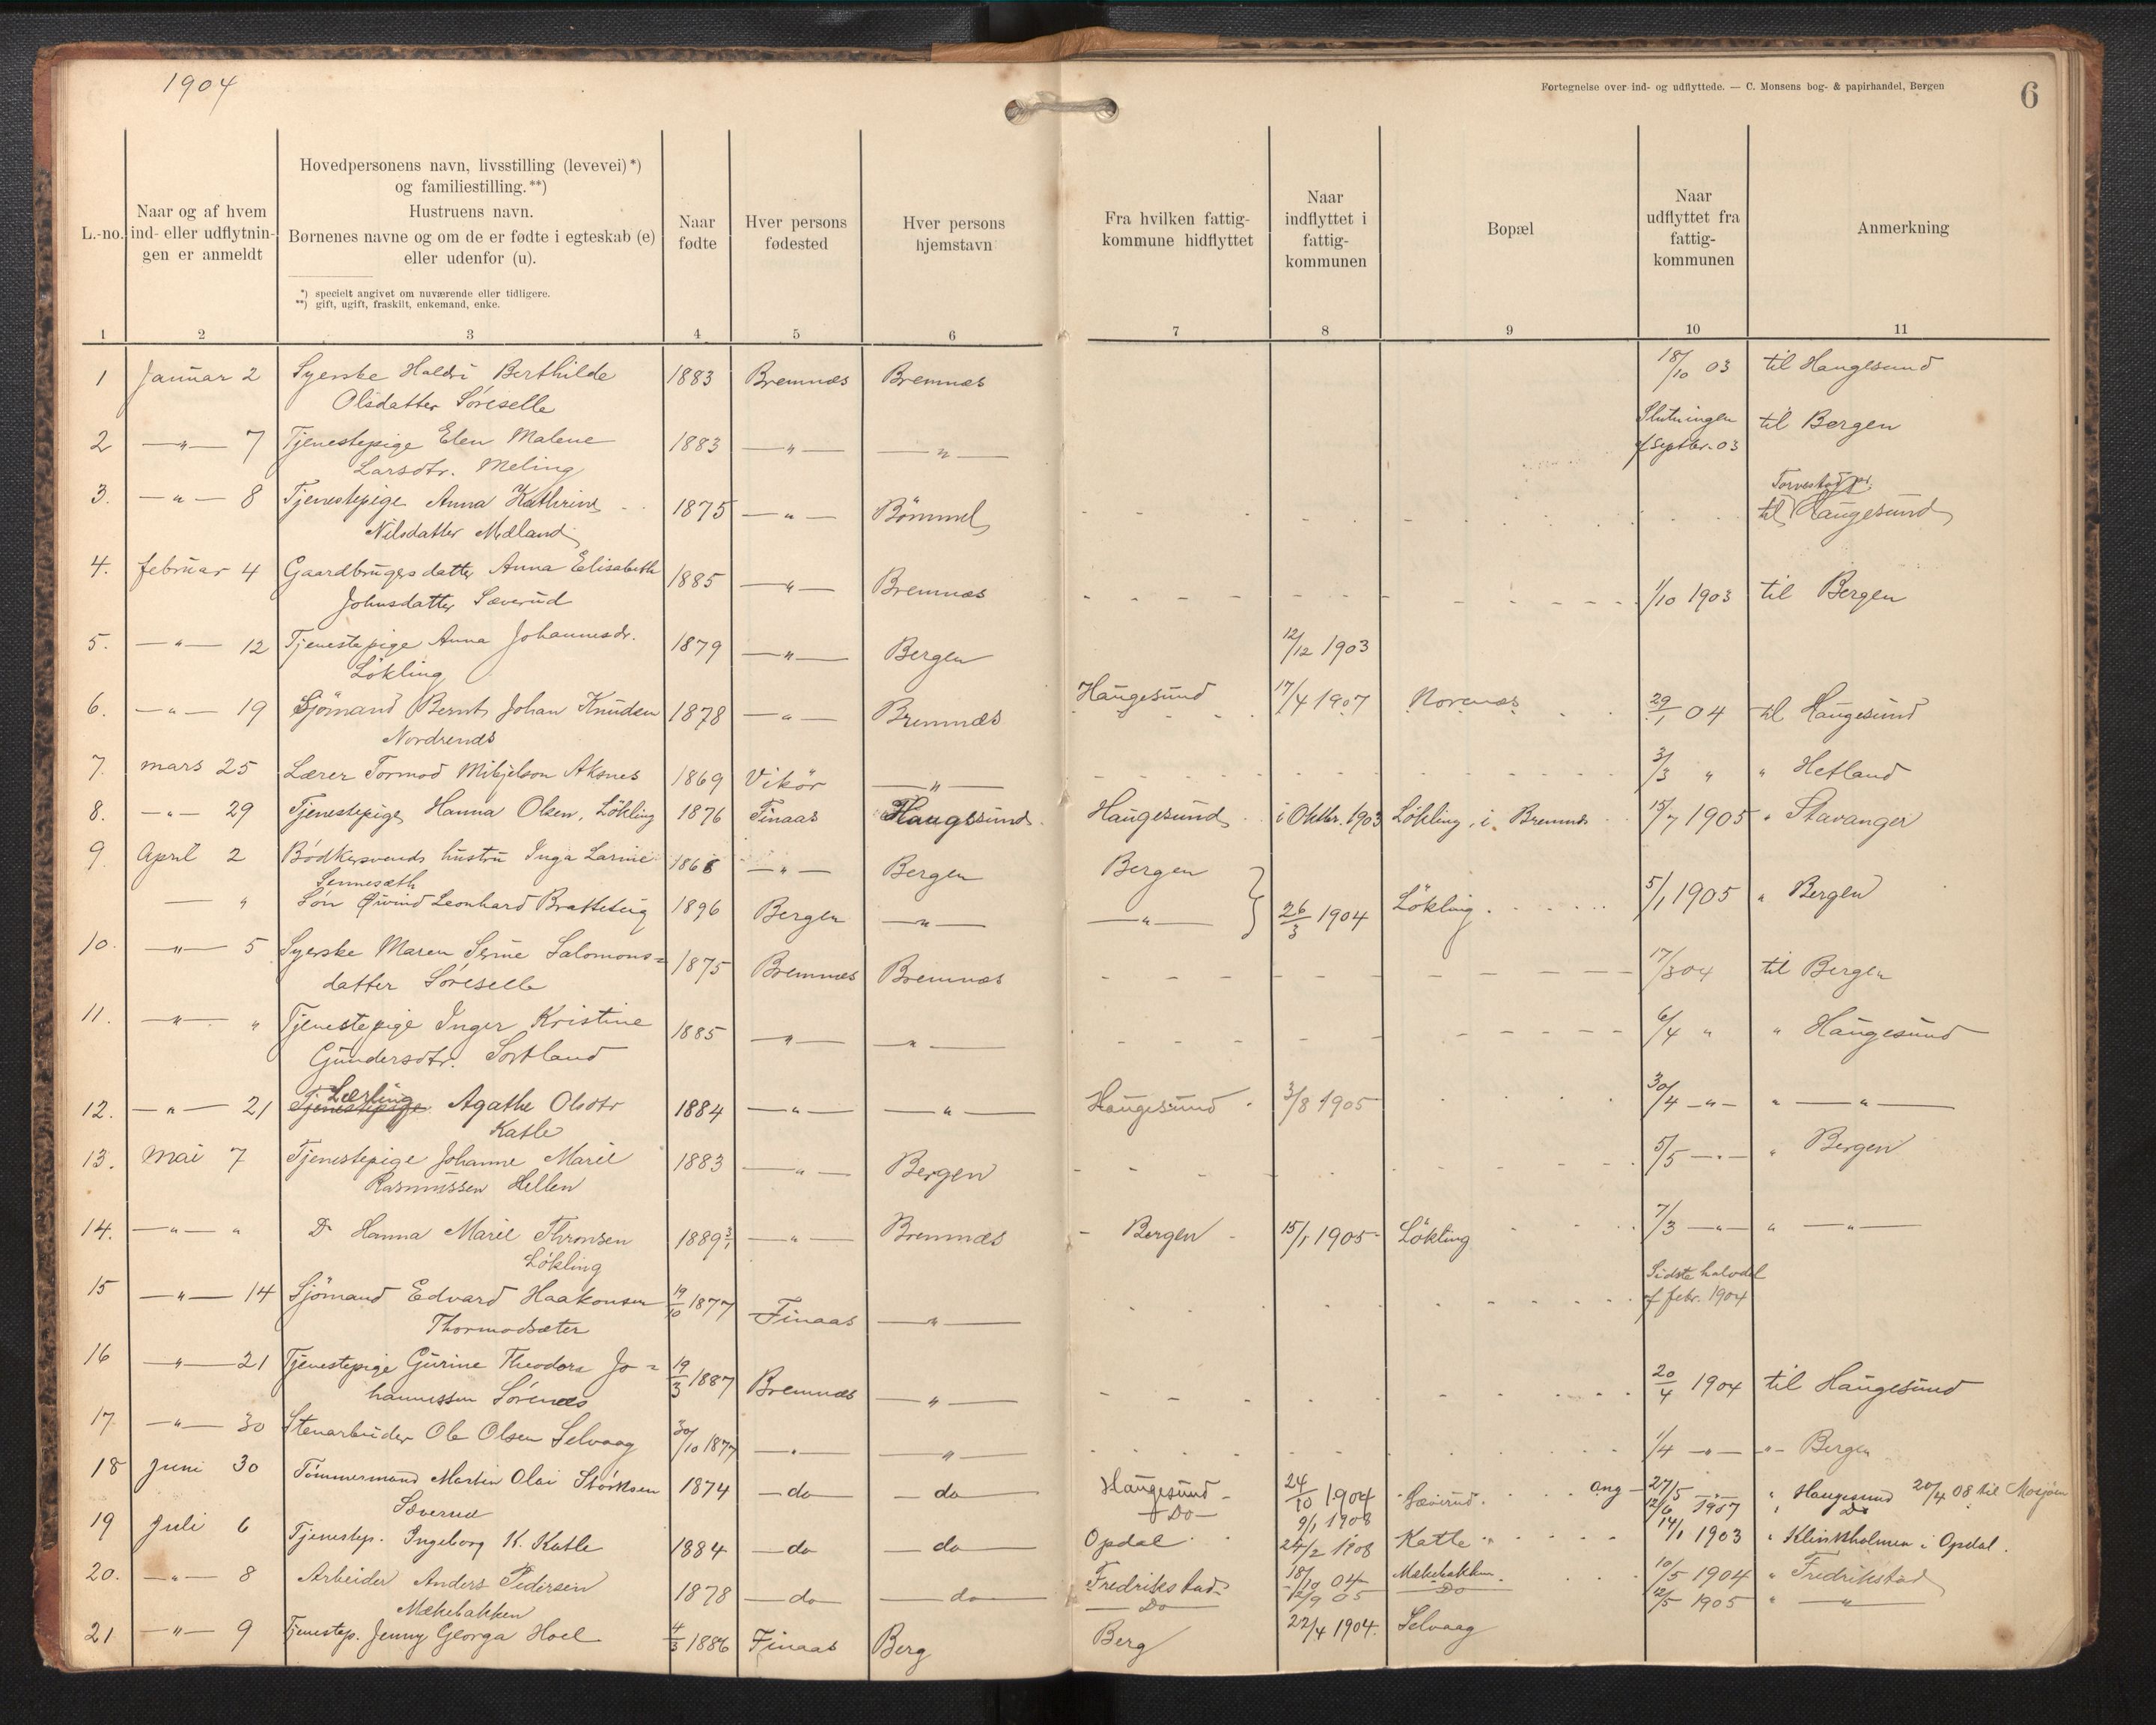 1904
Fortegnelse over ind- og udflyttede. — C. Monsens bog- & papirhandel, Bergen
6
L.-no.
Naar og af hvem ind- eller udflytningen er anmeldt
Hovedpersonens navn, livsstilling (levevei)*)
og familiestilling.**)
Hustruens navn.
Børnenes navne og om de er fødte i egteskab (e)
eller udenfor (u).
*) specielt angivet om nuværende eller tidligere.
**) gift, ugift, fraskilt, enkemand, enke.
Naar fødte
Hver persons fødested
Hver persons hjemstavn
Fra hvilken fattigkommune hidflyttet
Naar indflyttet i fattigkommunen
Bopæl
Naar udflyttet fra fattigkommunen
Anmerkning
1 2 3 4 5 6 7 8 9 10 11
1 Januar 2 Syerske Berthilde 1883 Bremnæs Bremnæs 18/10 03 til Haugesund
Olsdatter Söreselle
2 —"— 7 Tjenestepige Elen Malene 1883 —"— —"— Slutningen af Septbr. 03 til Bergen
Larsdtr. Meling
3. —"— 8 Tjenestepige Anna Kathrine 1875 —"— Bömmel til Haugesund
Nilsdatter Mæland
4. februar 4 Gaardbrugers datter Anna Elisabeth 1885 —"— Bremnæs 1/10 1903 til Bergen
Johnsdatter Sæverud
5. —"— 12 Tjenestepige Anna Johannesdr. 1879 —"— Bergen 12/12 1903
Lökling
6. —"— 19 Sjömand Bernt Johan Knudsen 1878 —"— Bremnæs Haugesund 17/4 1907 Norenæs 29/1 04 til Haugesund
Nordrenæs
7. mars 25 Lærer Tormod Mikjelson Aksnes 1869 Vikör —"— 3/3 " " Hetland
8. —"— 29 Tjenestepige Hanna Olsen, Lökling 1876 Finaas Haugesund Haugesund i Oktbr. 1903 Lökling, i Bremnæs 15/7 1905 " Stavanger
9 April 2 Bödkersvends hustru Inga Larine —"— Bergen Bergen
Sennesæth
— " Sön Øivind Leonhard Bratteteig 1896 Bergen —"— —"— 26/3 1904 Lökling 5/1 1905 " Bergen
10. —"— 5 Syerske Maren Serine Salomons= 1875 Bremnæs Bremnæs 17/3 04 til Bergen
datter Söreselle
11. —"— " Tjenestepige Inger Kristine 1885 —"— —"— 6/4 " " Haugesund
Gundersdtr. Sortland
12. —"— 21 Tjenestepige Lærling Agathe Olsdtr 1884 —"— —"— Haugesund 3/8 1905 30/4 —"— " —"—
Katle
13. Mai 7 Tjenestepige Johanne Marie 1883 —"— Bergen 5/5 —"— " Bergen
Rasmussen Hellen
14. —"— " Do Hanna Marie Thronsen 1889 3/1 —"— Bremnæs Bergen 15/1 1905 Lökling 7/3 —"— " —"—
Lökling
15 —"— 14 Sjömand Edvard Haakonsen 19/10 1877 Finaas —"— Sidste halvdel af febr. 1904
Thormodsæter
16 —"— 21 Tjenestepige Gurine Theodora Jo= 19/3 1887 Bremnæs —"— 20/4 1904 til Haugesund
hannessen Sörenæs
17. —"— 30 Stenarbeider Ole Olsen Selvaag 30/10 1877 —"— —"— 1/4 —"— "— Bergen
18 Juni 30 Tömmermand Martin Olai Störksen 1874 —do— —do— Haugesund 24/10 1904 Sæverud ang 27/5 —"— " Haugesund 20/4 08 til Mosjøen
Sæverud —Do— 9/1 1908 12/6 1907 " Do
19 Juli 6 Tjenestep. Ingeborg K. Katle 1884 —do— —do— Opdal 24/2 1908 Katle 14/1 1903 " Klinkholmen i Opdal.
20. —"— 8 Arbeider Anders Pedersen 1878 —do— —do— Fredrikstad 18/10 04 Mækebakken 10/5 1904 " Fredrikstad
Mækebakken —Do— 12/9 05 Do 12/5 1905 " —"—
21 —"— 9 Tjenestep. Jenny Georga Hoel 4/3 1886 Finaas Berg Berg 22/4 1904. Selvaag